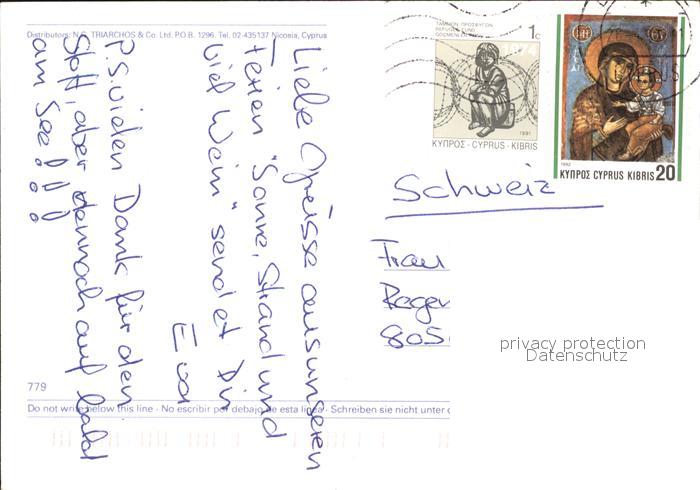 Distributors: N.G. TRIARCHOS & Co. Ltd. P.O.B. 1296. Tel. 02-435137 Nicosia, Cyprus
Liebe Grüsse aus unseren
Ferien "Sonne, Strand und
viel Wein" sendet Dir
Eva
P.S vielen Dank für den
Stoff, aber dennoch auf bald
am See!!!
ΤΑΜΕΙΟΝ ΠΡΟΣΦΥΓΩΝ
REFUGEE FUND
1c
1974
1991
ΚΥΠΡΟΣ · CYPRUS · KIBRIS
1992
ΚΥΠΡΟΣ CYPRUS KIBRIS 20
Schweiz
Frau
805
privacy protection
Datenschutz
779
Do not write below this line · No escribir por debajo de esta linea · Schreiben sie nicht unter